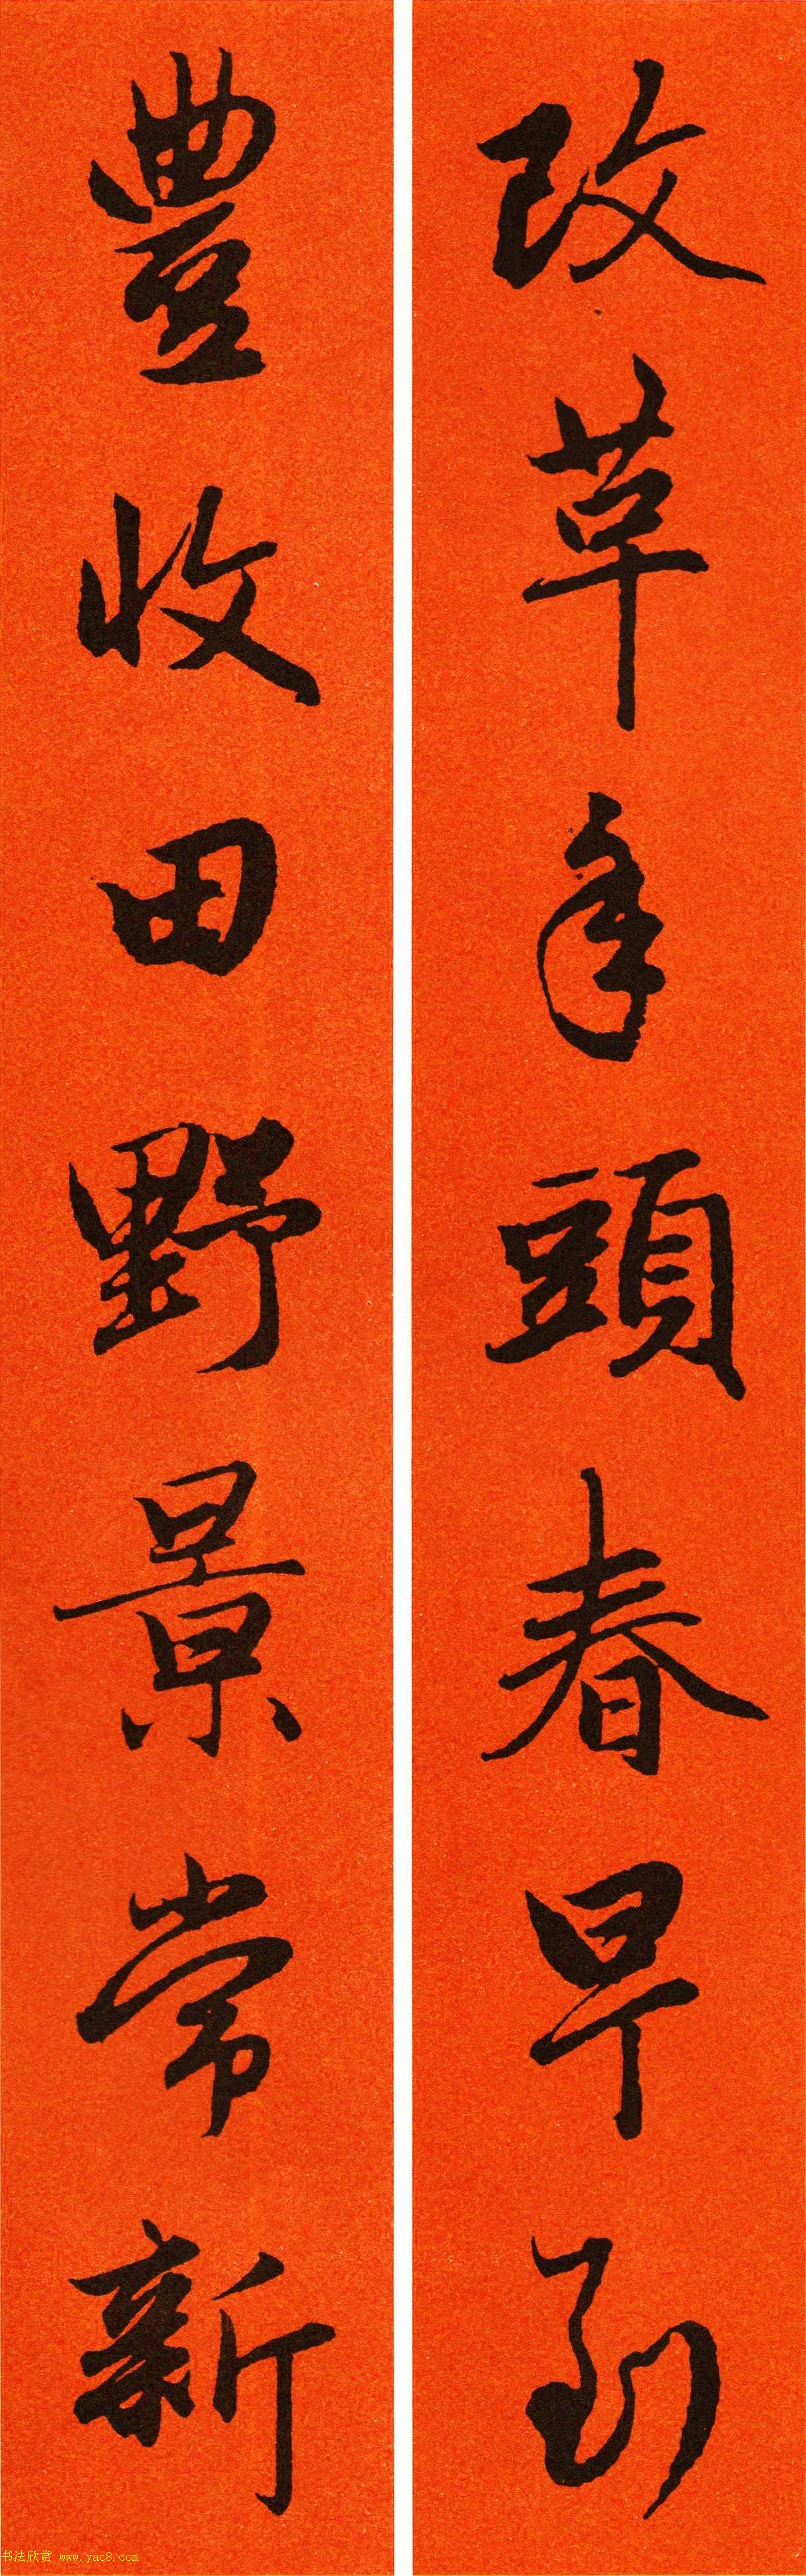 改草年頭春早到
豐收田野景常新
书法欣赏 www.yac8.com